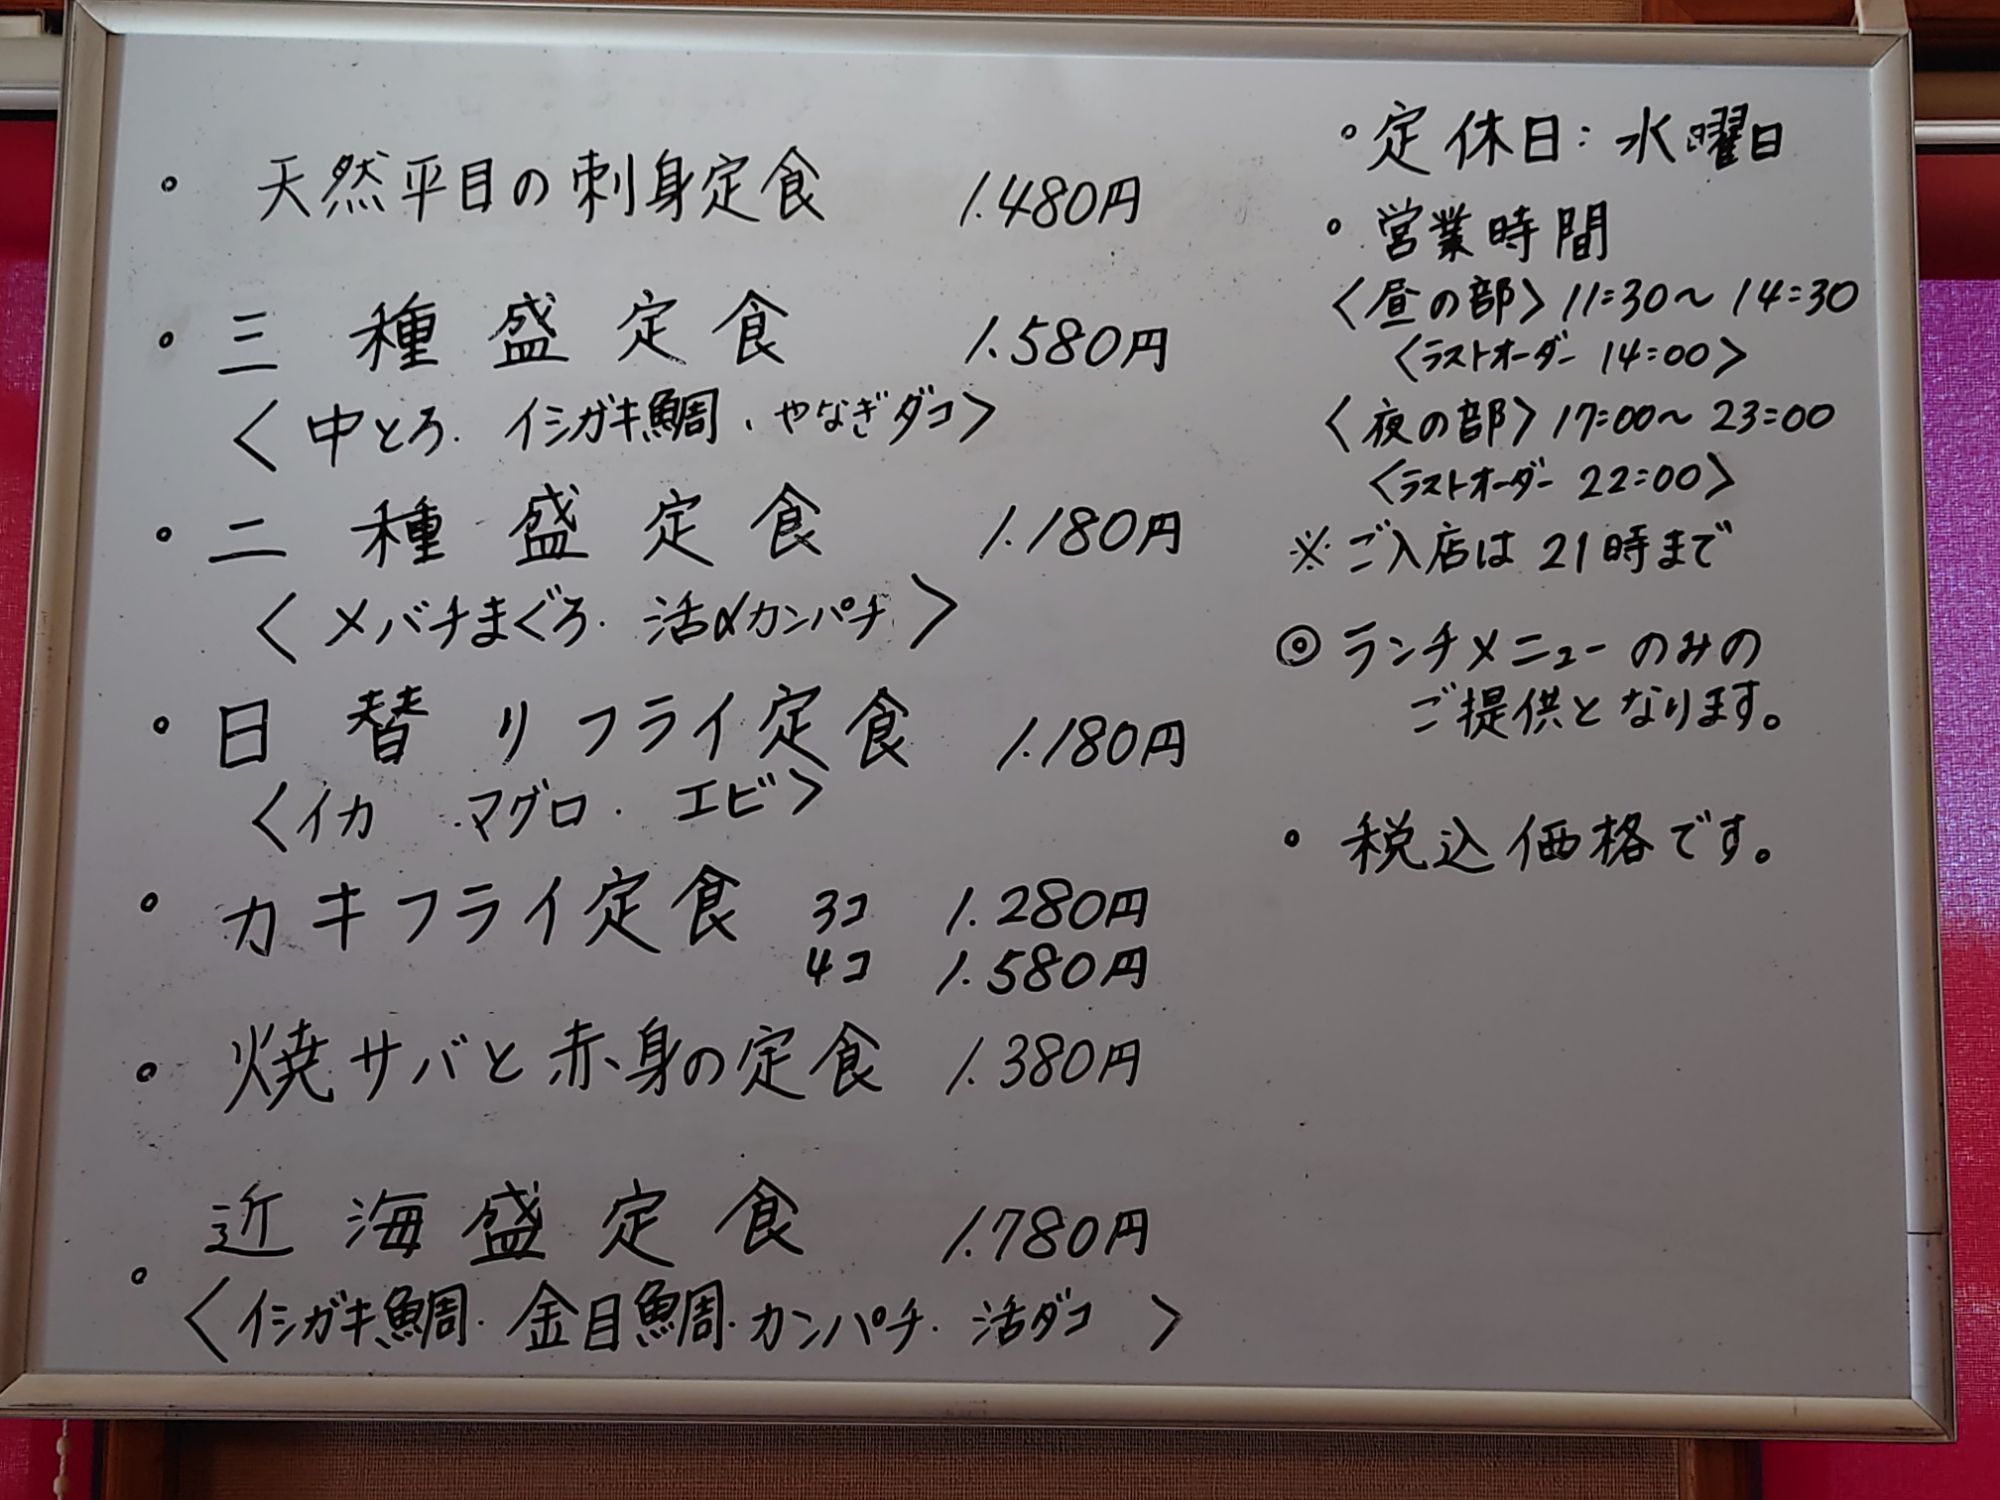 。天然平目の刺身定食 1.480円
。三種盛定食 1.580円
〈中とろ.イシガキ鯛、やなぎダコ〉
。二種盛定食 1.180円
〈メバチまぐろ.活〆カンパチ〉
。日替りフライ定食 1.180円
〈イカ.マグロ.エビ〉
。カキフライ定食 3コ 1.280円
4コ 1.580円
。焼サバと赤身の定食 1.380円
。近海盛定食 1.780円
〈イシガキ鯛.金目鯛.カンパチ.活ダコ 〉
。定休日:水曜日
。営業時間
〈昼の部〉11:30〜14:30
〈ラストオーダー 14:00〉
〈夜の部〉17:00〜23:00
〈ラストオーダー 22:00〉
※ご入店は21時まで
◎ランチメニューのみの
ご提供となります。
。税込価格です。